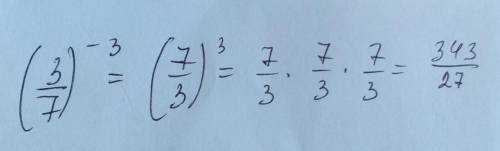 (3/7)^-3 = (7/3)^3 = 7/3 · 7/3 · 7/3 = 343/27